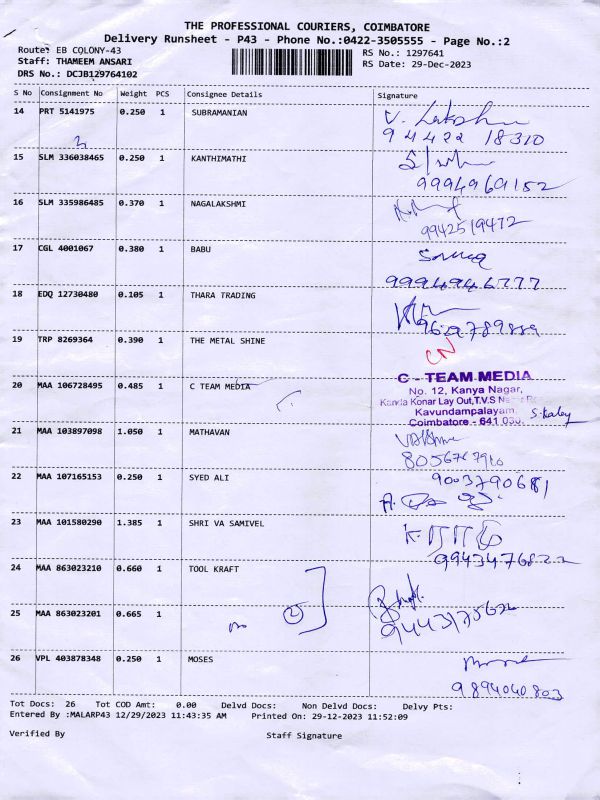 THE PROFESSIONAL COURIERS, COIMBATORE
Delivery Runsheet - P43 - Phone No.:0422-3505555 - Page No.:2
Route: EB COLONY-43
RS No.: 1297641
Staff: THAMEEM ANSARI
RS Date: 29-Dec-2023
DRS No.: DCJB129764102
S No Consignment No Weight PCS Consignee Details Signature
14 PRT 5141975 0.250 1 SUBRAMANIAN V. Lakshmi
94422 18310
2
15 SLM 336038465 0.250 1 KANTHIMATHI
9994969152
16 SLM 335986485 0.370 1 NAGALAKSHMI
9942519472
17 CGL 4001067 0.380 1 BABU
9994946777
18 EDQ 12730480 0.105 1 THARA TRADING
9629789889
19 TRP 8269364 0.390 1 THE METAL SHINE CN
20 MAA 106728495 0.485 1 C TEAM MEDIA C - TEAM MEDIA
No. 12, Kanya Nagar,
Kanda Konar Lay Out, T.V.S
Kavundampalayam,
Coimbatore - 641 030.
21 MAA 103897098 1.050 1 MATHAVAN
8056767910
22 MAA 107165153 0.250 1 SYED ALI 9003790681
23 MAA 101580290 1.385 1 SHRI VA SAMIVEL
9943476822
24 MAA 863023210 0.660 1 TOOL KRAFT
25 MAA 863023201 0.665 1 2
9443175672
26 VPL 403878348 0.250 1 MOSES
9894040803
Tot Docs: 26 Tot COD Amt: 0.00 Delvd Docs: Non Delvd Docs: Delvy Pts:
Entered By :MALARP43 12/29/2023 11:43:35 AM Printed On: 29-12-2023 11:52:09
Verified By Staff Signature